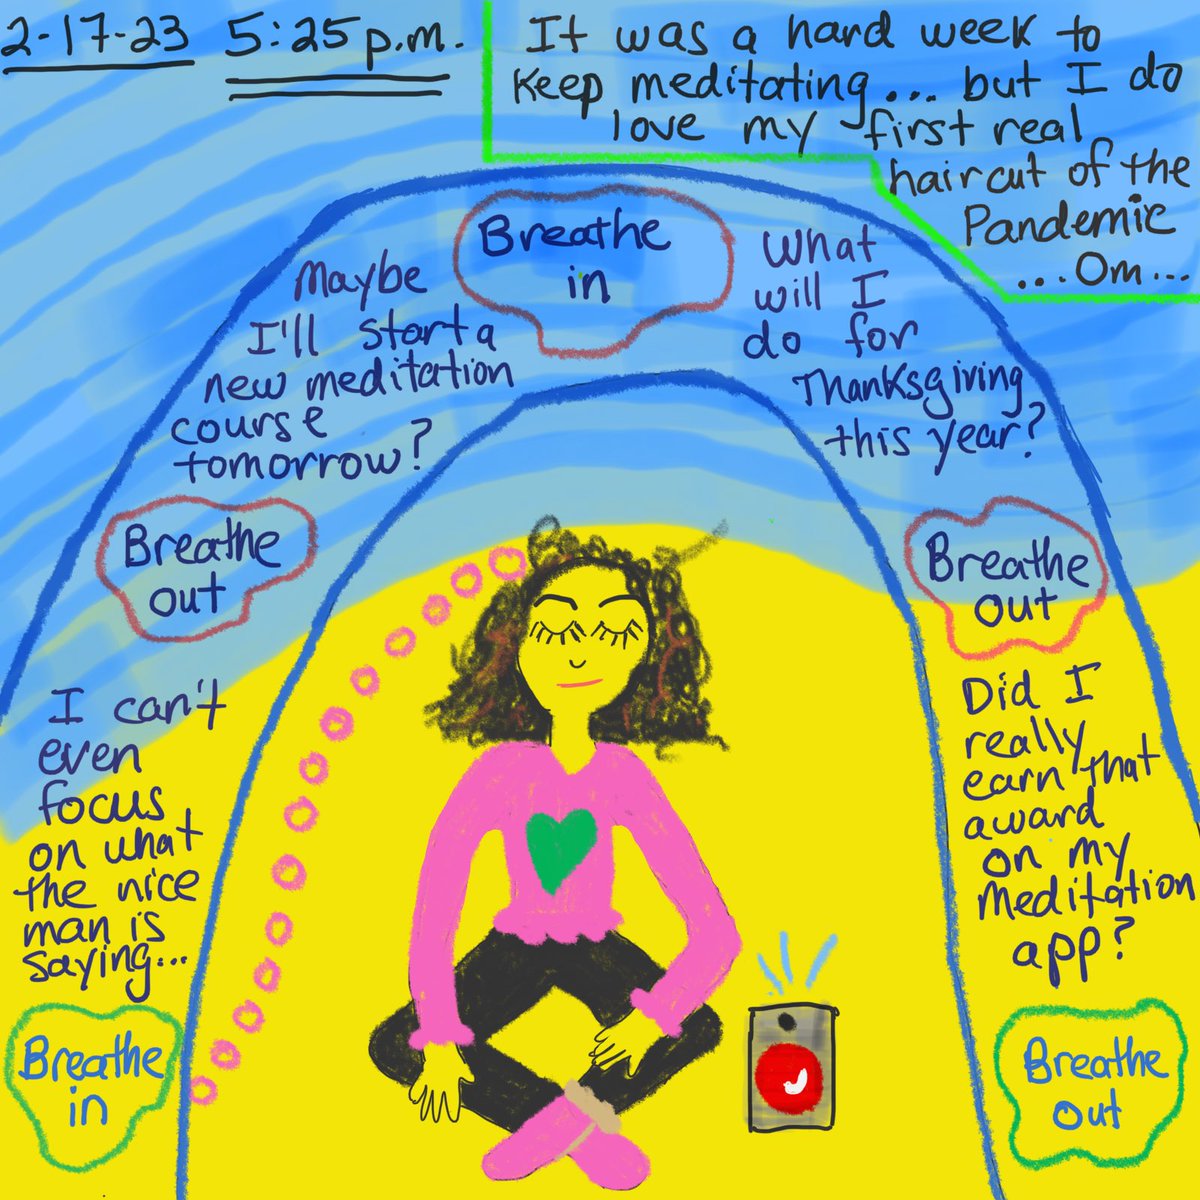 2-17-23 5:25 p.m.
It was a hard week to
keep meditating... but I do
love my first real
haircut of the
Pandemic
...Om...
Breathe
in
I can't
even
focus
on what
the nice
man is
saying...
Breathe
out
Maybe
I'll start a
new meditation
course
tomorrow?
Breathe
in
What
will I
do for
Thanksgiving
this year?
Breathe
out
Did I
really
earn that
award
on my
meditation
app?
Breathe
out